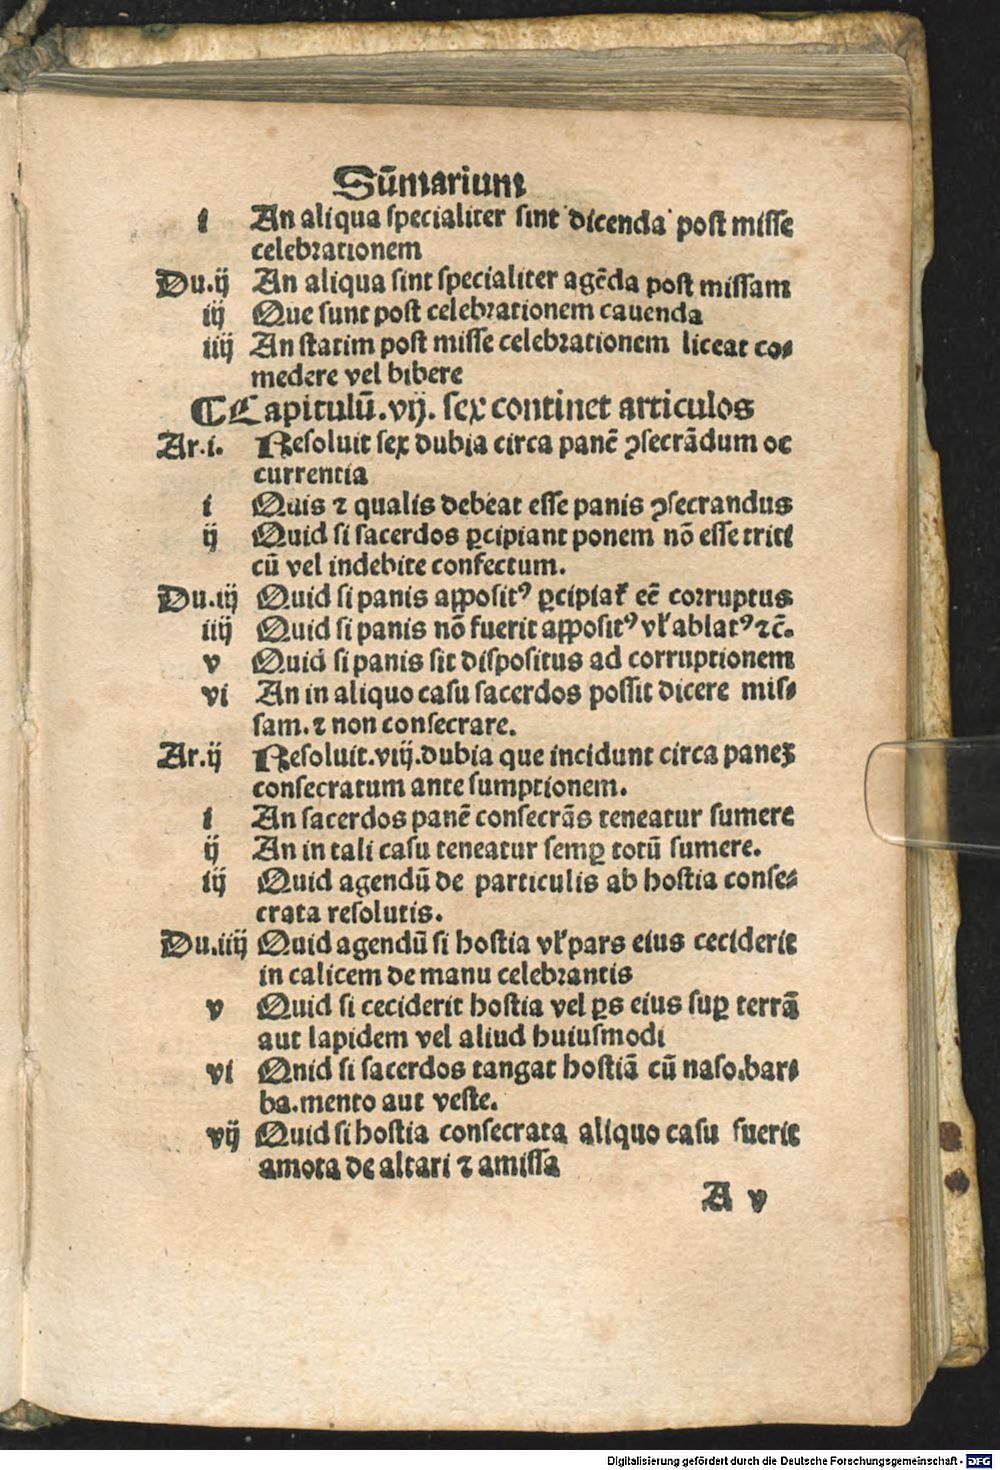 Sūmarium
i An aliqua specialiter sint dicenda post misse
celebrationem
Du.ij An aliqua sint specialiter agēda post missam
iij Que sunt post celebrationem cauenda
iiij An statim post misse celebrationem liceat co⸗
medere vel bibere
¶ Capitulū.vij. sex continet articulos
Ar.i. Resoluit sex dubia circa panē ꝯsecrādum oc
currentia
i Quis ⁊ qualis debeat esse panis ꝯsecrandus
ij Quid si sacerdos ꝑcipiant ponem nō esse triti
cū vel indebite confectum.
Du.iij Quid si panis aꝓposit⁹ ꝑcipiat̃ eē corruptus
iiij Quid si panis nō fuerit aꝓposit⁹ vl̓ ablat⁹ ⁊c̄.
v Quid si panis sit dispositus ad corruptionem
vi An in aliquo casu sacerdos possit dicere mis⸗
sam. ⁊ non consecrare.
Ar.ij Resoluit.viij.dubia que incidunt circa paneꝫ
consecratum ante sumptionem.
i An sacerdos panē consecrās teneatur sumere
ij An in tali casu teneatur semꝑ totū sumere.
iij Quid agendū de particulis ab hostia conse⸗
crata resolutis.
Du.iiij Quid agendū si hostia vl̓ pars eius ceciderit
in calicem de manu celebrantis
v Quid si ceciderit hostia vel ꝑs eius suꝑ terrā
aut lapidem vel aliud huiusmodi
vi Qnid si sacerdos tangat hostiā cū naso.bar⸗
ba.mento aut veste.
vij Quid si hostia consecrata aliquo casu fuerit
amota de altari ⁊ amissa
A v
Digitalisierung gefördert durch die Deutsche Forschungsgemeinschaft - DFG